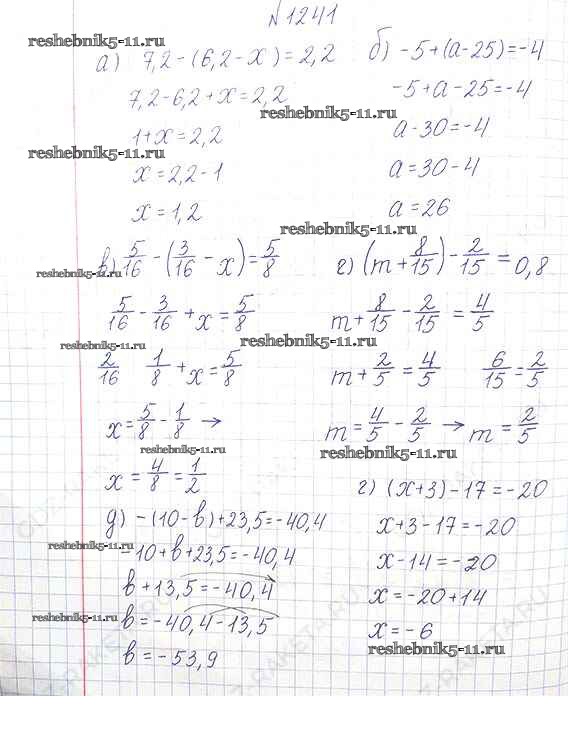 N 1241
reshebnik5-11.ru
а) 7,2-(6,2-x)=2,2
7,2-6,2+x=2,2
1+x=2,2
reshebnik5-11.ru
x=2,2-1
x=1,2
б) -5+(a-25)=-4
-5+a-25=-4
reshebnik5-11.ru
a-30=-4
a=30-4
a=26
reshebnik5-11.ru
в) 5/16-(3/16-x)=5/8
reshebnik5-11.ru
5/16-3/16+x=5/8
reshebnik5-11.ru
2/16 1/8+x=5/8
x=5/8-1/8 →
reshebnik5-11.ru
x=4/8=1/2
г) (m+8/15)-2/15=0,8
m+8/15-2/15=4/5
reshebnik5-11.ru
m+2/5=4/5 6/15=2/5
m=4/5-2/5 → m=2/5
reshebnik5-11.ru
д) -(10-b)+23,5=-40,4
reshebnik5-11.ru
-10+b+23,5=-40,4
b+13,5=-40,4
reshebnik5-11.ru
b=-40,4-13,5
b=-53,9
г) (x+3)-17=-20
x+3-17=-20
x-14=-20
x=-20+14
x=-6
reshebnik5-11.ru